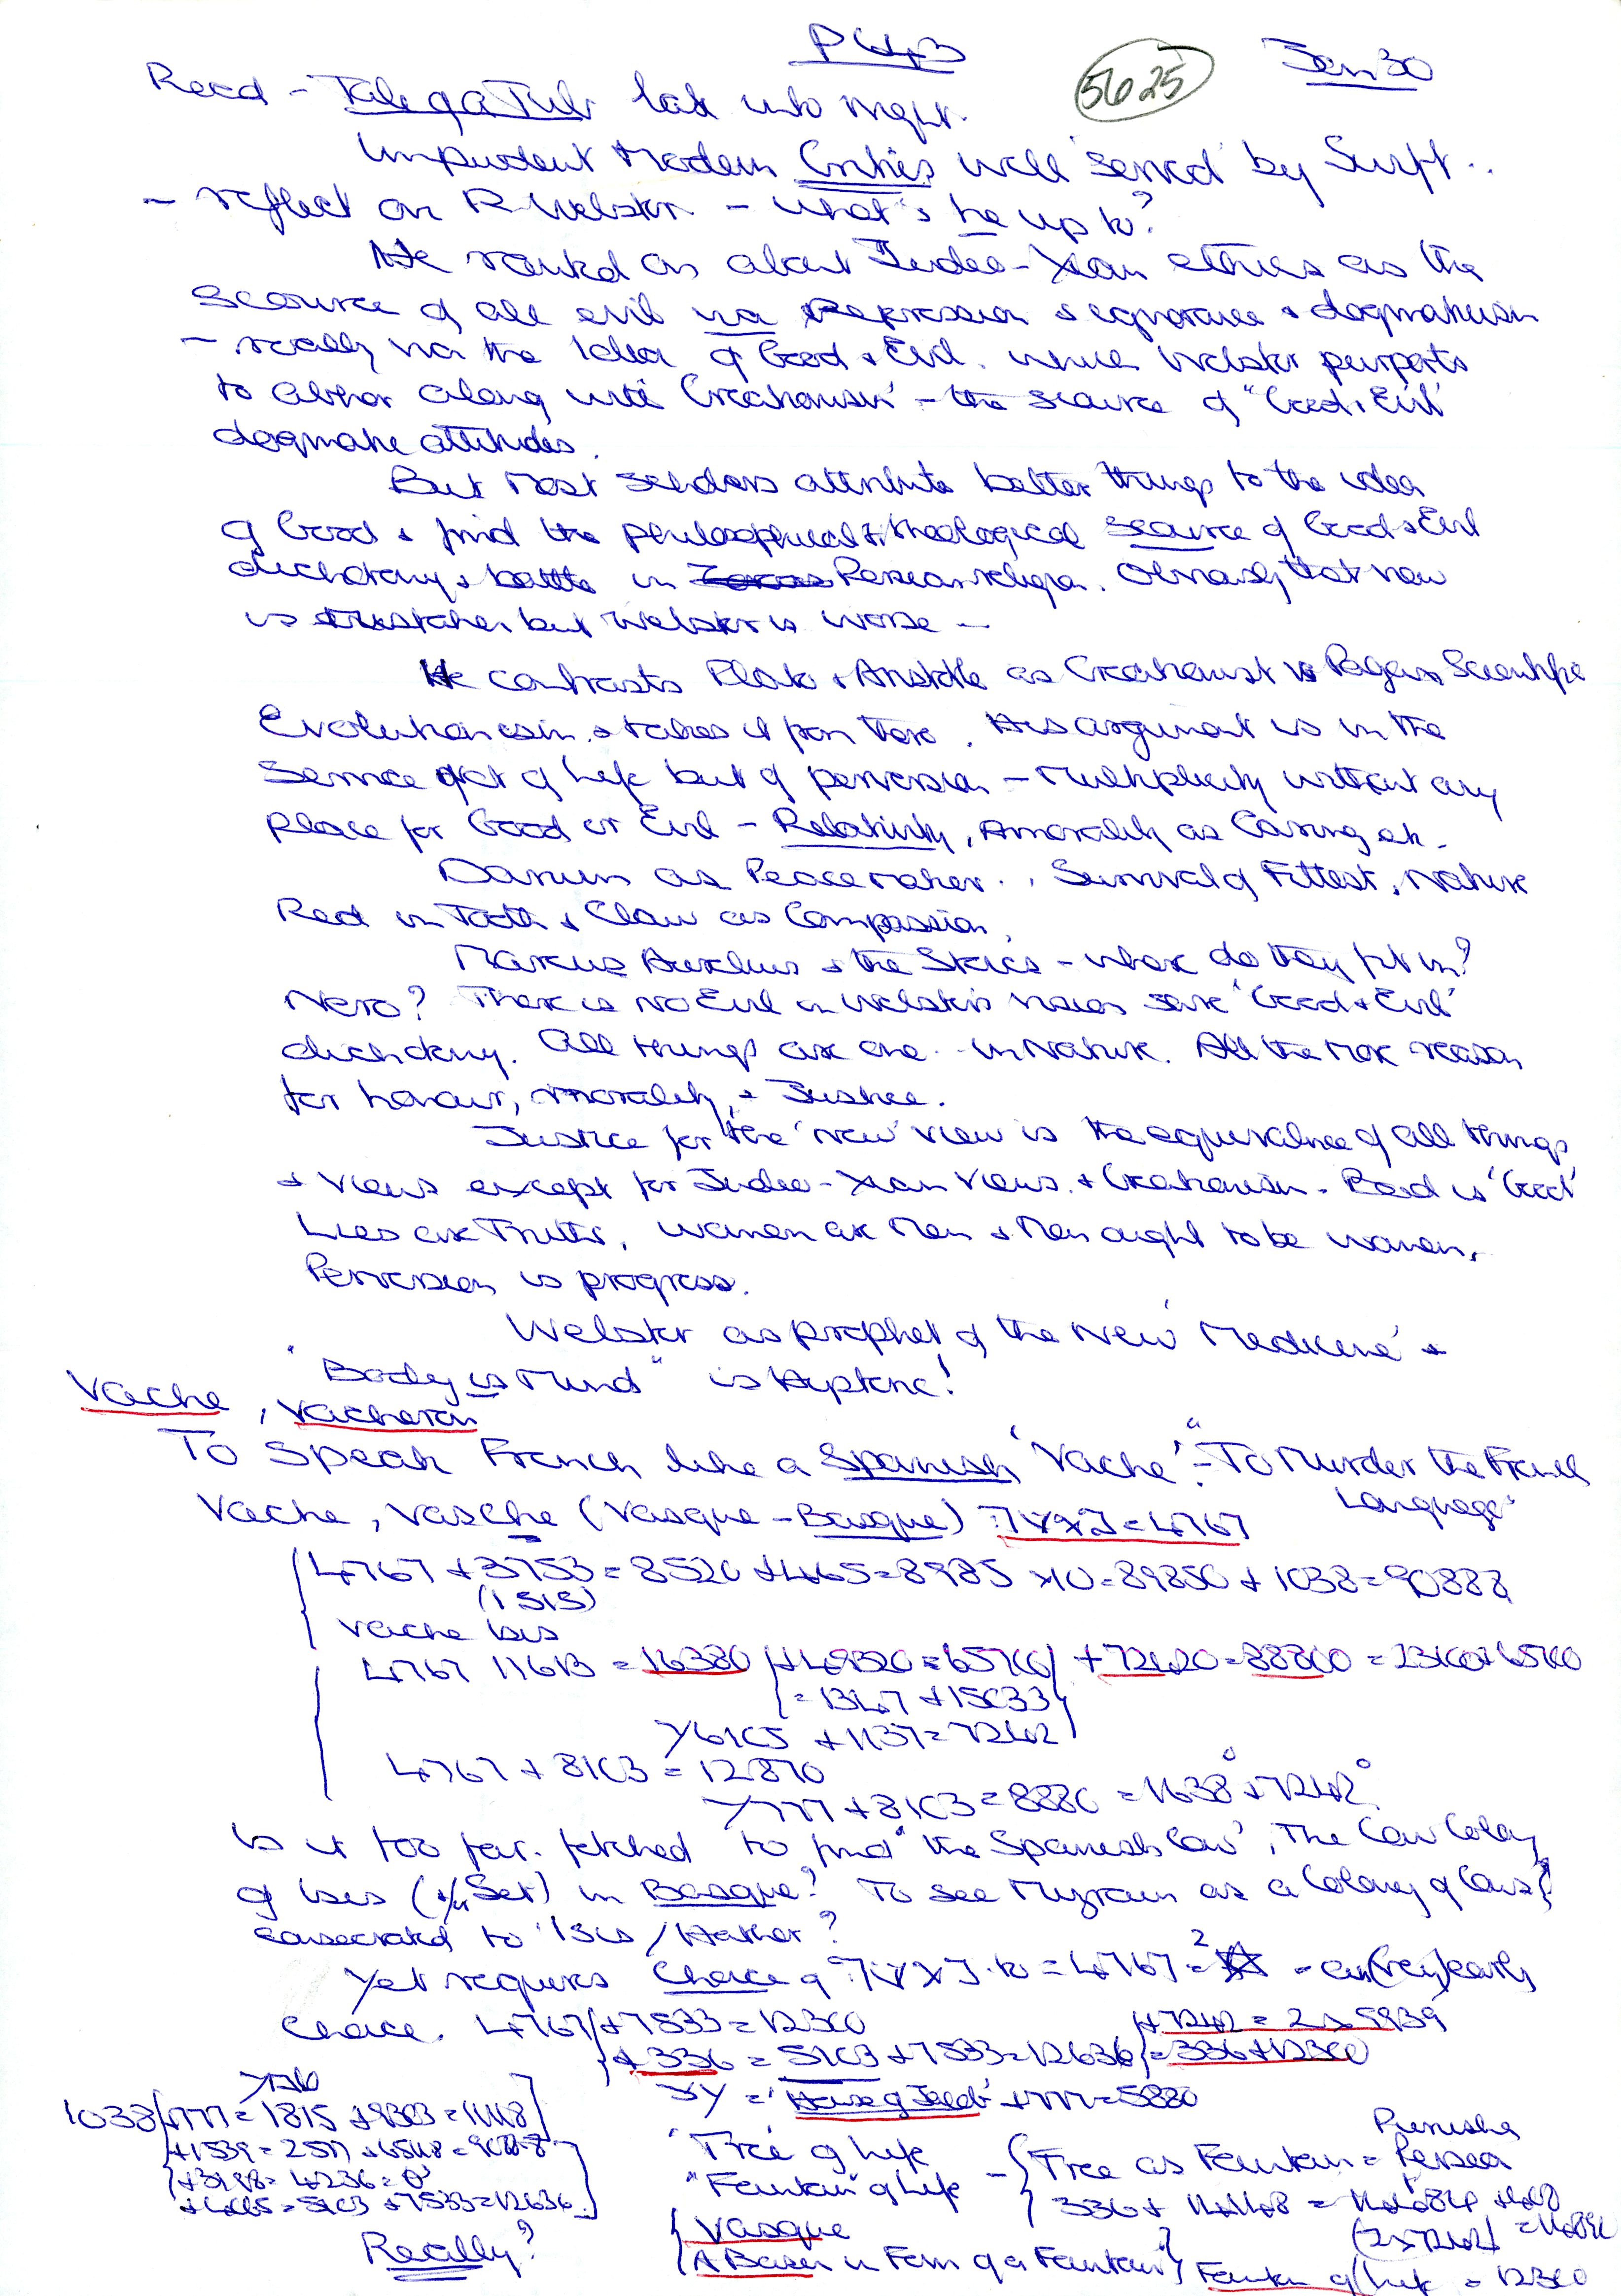 P643
5625
Jan 30
Read - Tale of a Tub late into night.
Impudent Modern Critics well 'served' by Swift..
- reflect on R Webster - what's he up to?
He ranted on about Judeo-Xian ethics as the
source of all evil via Repression & ignorance & dogmatism
- really via the Idea of Good & Evil. which Webster purports
to abhor along with 'Creationism' - the source of "Good & Evil"
dogmatic attitudes.
But most scholars attribute better things to the idea
of Good & find the philosophical & theological source of Good & Evil
dichotomy & battle in Persian religion. Obviously that view
is mistaken but Webster is worse -
He contrasts Plato & Aristotle as Creationist vs Pagan Scientific
Evolutionism & takes it from there. His argument is in the
service not of life but of perversion - Multiplicity without any
place for Good or Evil - Relativity, Amorality as Caring etc -
Darwin as Peacemaker.., Survival of Fittest, Nature
Red in Tooth & Claw as Compassion.
Marcus Aurelius & the Stoics - where do they fit in?
Nero? There is no Evil in Webster's vision save 'Good & Evil'
dichotomy. All things are one - in Nature. All the more reason
for honour, morality, & Justice.
Justice for the 'new' view is the equivalence of all things
& views except for Judeo-Xian views & Creationism - Bad is 'Good'
Lies are Truths, women are Men & Men ought to be women,
Perversion is progress.
Webster as prophet of the 'New Medicine' &
"Body is Mind" is
Vache, Vacheron
To Speak French like a Spanish 'Vache' - "To Murder the French
Language"
Vache, Vasche (Vasque - Basque) = 4767
4767 + 3753 = 8520 + 465 = 8985 x10 = 89850 + 1038 = 90888
(ISIS)
Vache Isis
4767 11613 = 16380 + 49320 = 65700 + 72420 = 88800 = 23100 + 65700
= 1347 + 15033
>6105 + 1137 = 7242
4767 + 8103 = 12870
>777 + 8103 = 8880 = 1638° + 7242°
Is it too far-fetched to find "the Spanish Cow', The Cow Colony
of Isis (&/or Set) in Basque? To see as a Colony of Cows
consecrated to 'Isis / Hathor?
Yet requires choice of = 4767 = - early
choice. 4767 + 7533 = 12300 + 7242 = 2 x 5939
+ 336 = 5103 + 7533 = 12636 = 336 + 12300
= 'House of ' + 777 = 5880
1038 + 777 = 1815 + 9303 = 11118
+ 1539 = 2577
+ 3198 = 4236 = 0°
+ 4065 = 5103 + 7533 = 12636
Really?
'Tree' of Life
"Fountain" of Life
Tree as Fountain = Persea
336 + 14148 = 14484
(2x7242)
Vasque
A Basin in Form of a Fountain"
Fountain of Life = 12300